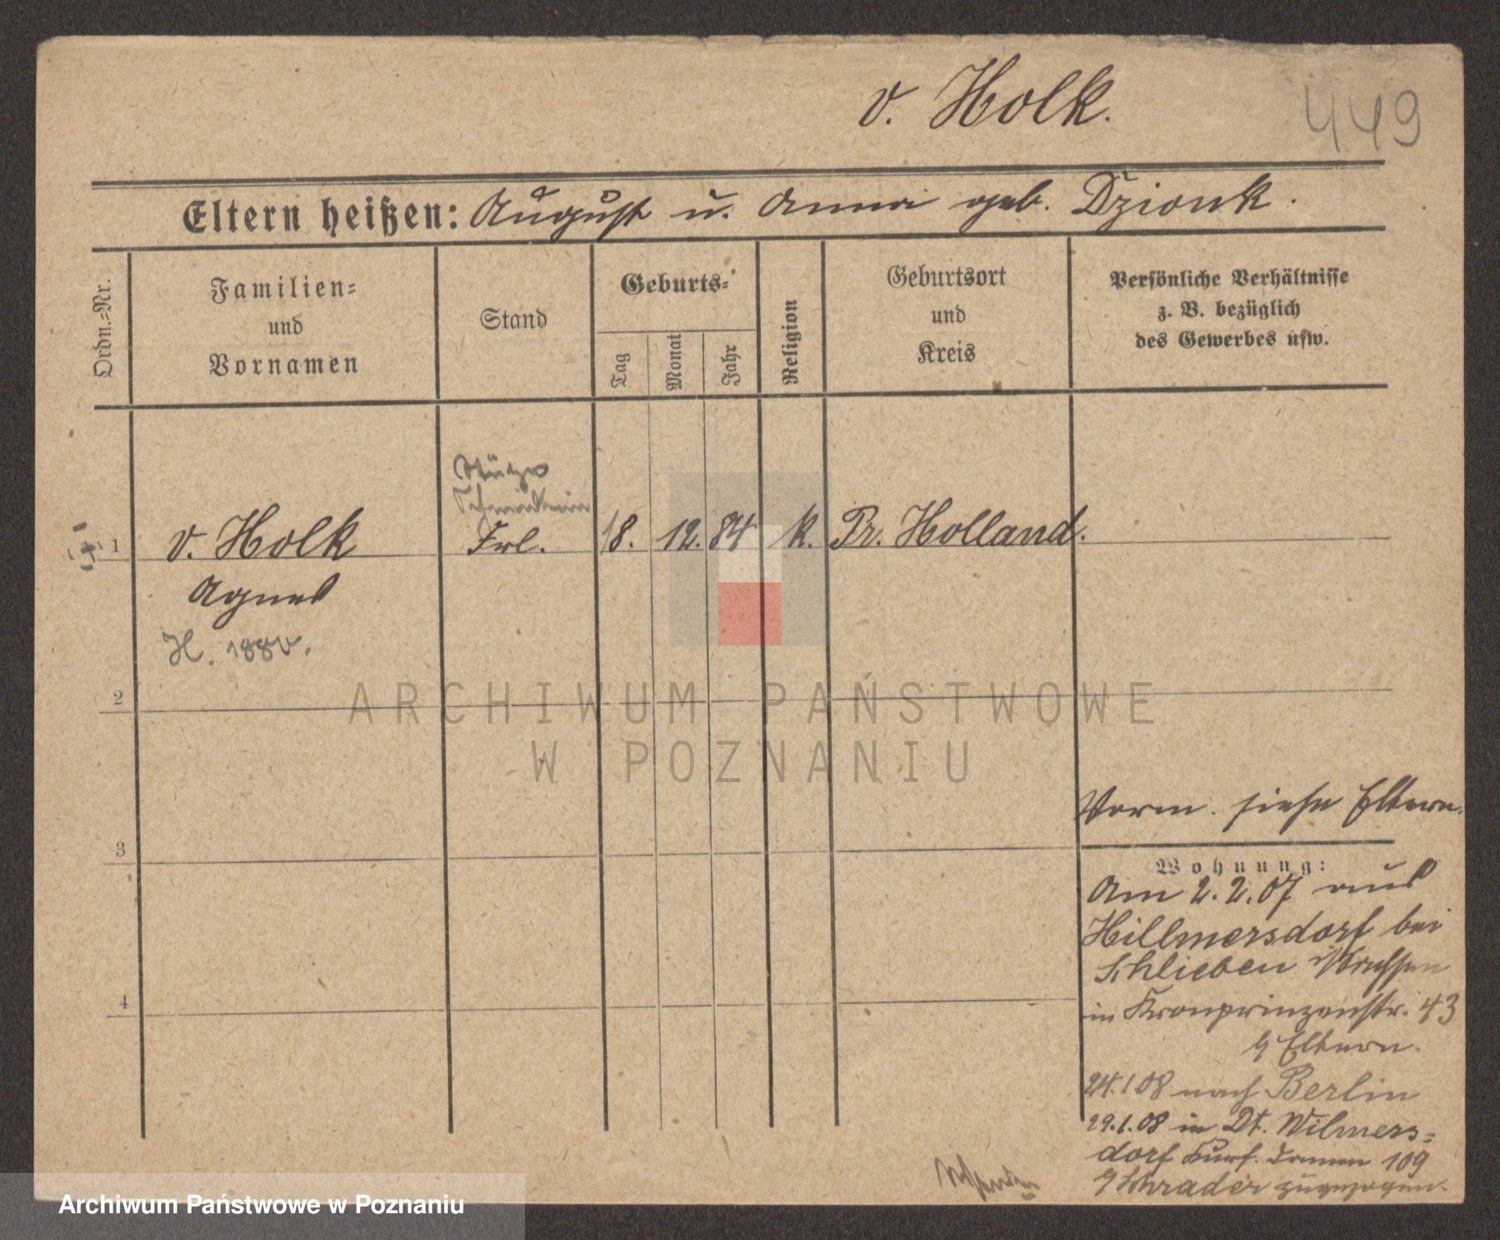 v. Holk.
449
Eltern heißen: August u. Anna geb. Dzionk.
Ordn.-Nr.
Familien-
und
Vornamen
Stand
Geburts-
Tag
Monat
Jahr
Religion
Geburtsort
und
Kreis
Persönliche Verhältnisse
z. B. bezüglich
des Gewerbes usw.
Stütze
Schneiderin
1 v. Holk Frl. 18. 12. 84 k. Pr. Holland.
Agnes
H. 1880.
2
ARCHIWUM PAŃSTWOWE
W POZNANIU
3
4
Vorm. siehe Eltern.
Wohnung:
Am 2.2.07 aus
Hillmersdorf bei
Schlieben
in Kronprinzenstr. 43
b/ Eltern.
24.1.08 nach Berlin
29.1.08 in Dt. Wilmers-
dorf Kurf. Damm 109
b/ Schrader zugezogen.
Archiwum Państwowe w Poznaniu